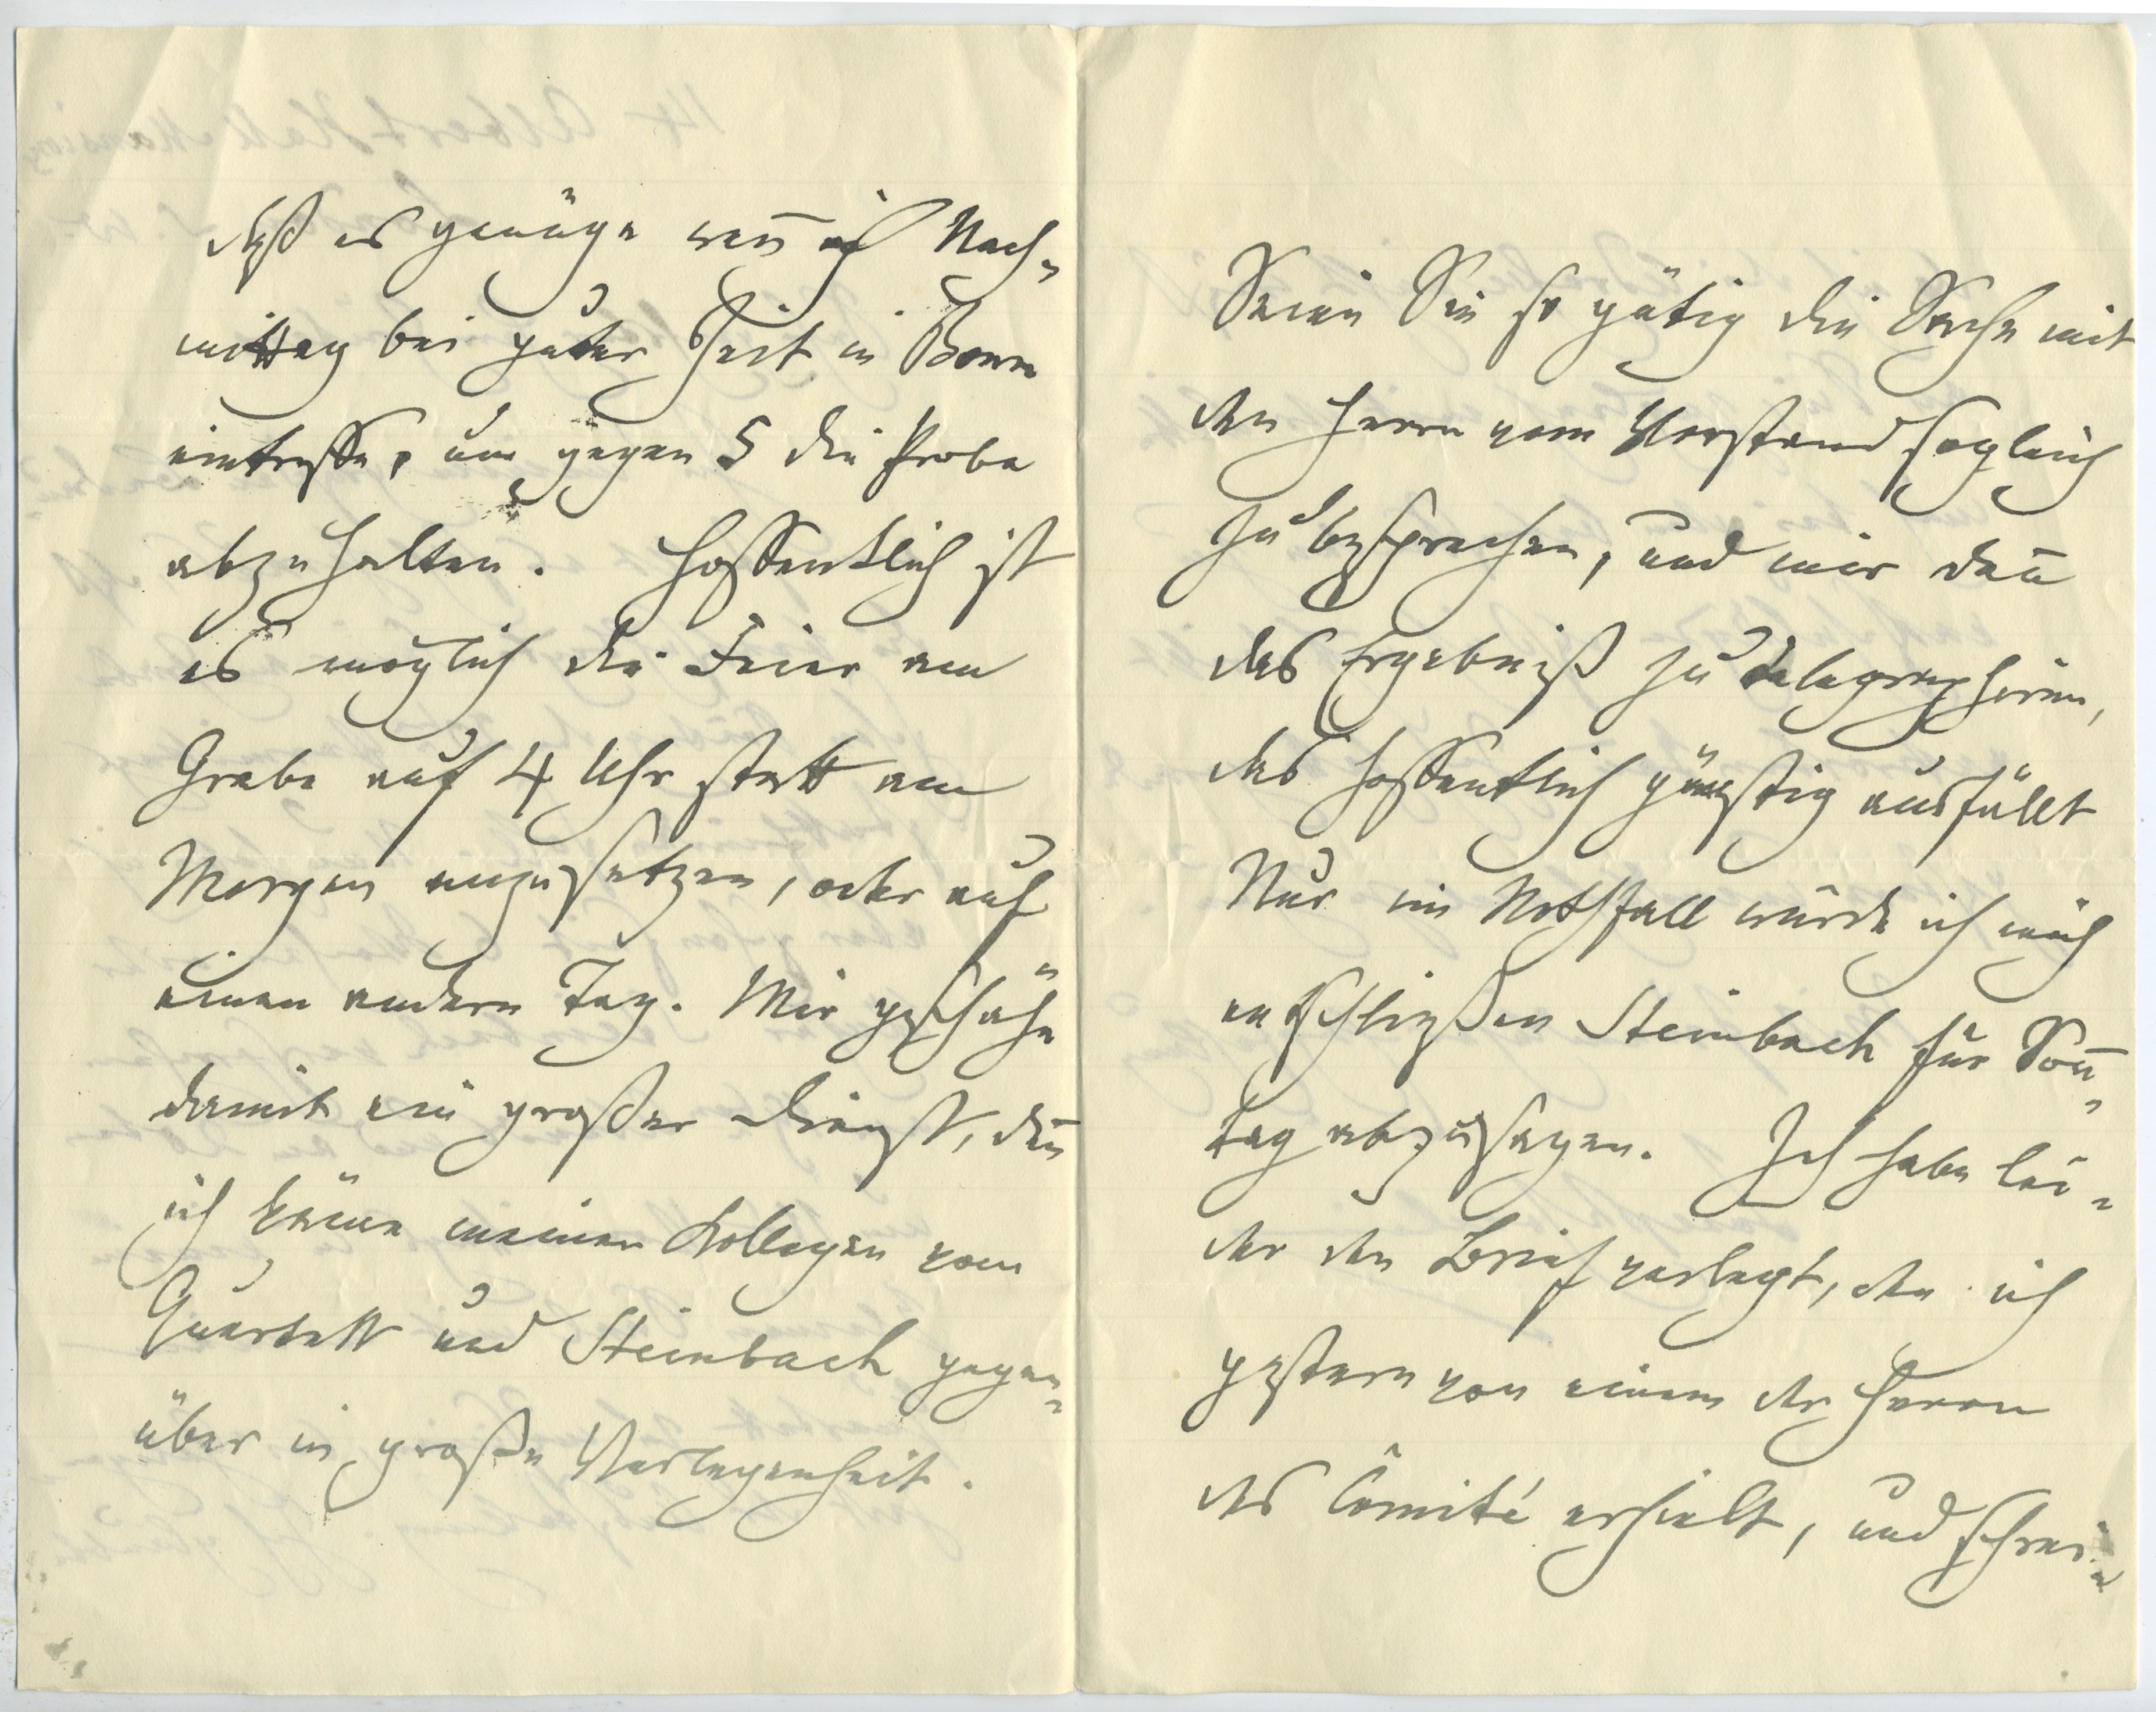 daß es genüge wen̅ ich Nach-
mittag bei guter Zeit in Bonn
eintreffe, um gegen 5 die Probe
abzuhalten. Hoffentlich ist
es möglich die Feier am
Grabe auf 4 Uhr statt am
Morgen anzusetzen, oder auf
einen andern Tag. Mir geschähe
damit ein großer Dienst, den̅
ich käme meinen Kollegen vom
Quartett und Steinbach gegen-
über in große Verlegenheit.
Seien Sie so gütig die Sache mit
den Herrn vom Vorstand sogleich
zu besprechen, und mir dan̅
das Ergebniß zu telegraphiren,
das hoffentlich günstig ausfällt
Nur im Nothfall würde ich mich
entschließen Steinbach für Son̅-
tag abzusagen. Ich habe lei-
der den Brief verlegt, den ich
gestern von einem der Herrn
des Comité erhielt, und schrei-